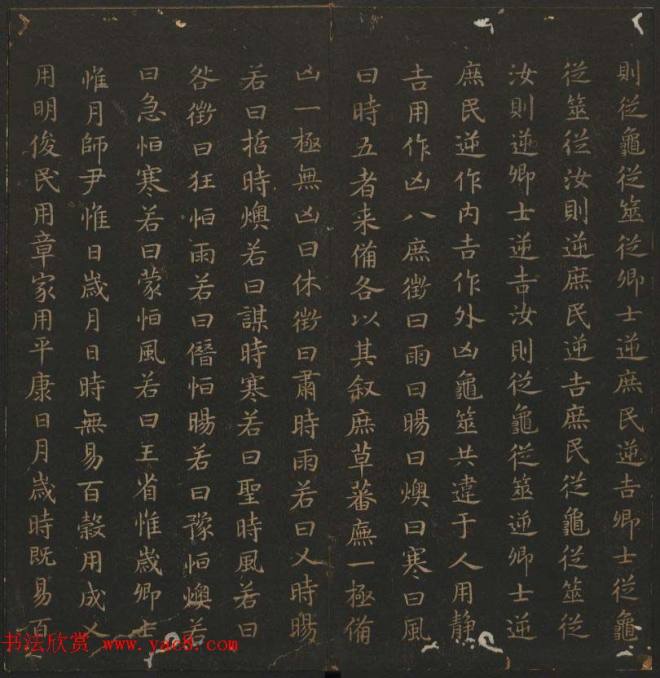 則從龜從筮從卿士逆庶民逆吉卿士從龜
從筮從汝則逆庶民逆吉庶民從龜從筮從
汝則逆卿士逆吉汝則從龜從筮逆卿士逆
庶民逆作内吉作外凶龜筮共違于人用静
吉用作凶八庶徵曰雨曰暘曰燠曰寒曰風
曰時五者来備各以其叙庶草蕃廡一極備
凶一極無凶曰休徵曰肅時雨若曰乂時暘
若曰哲時燠若曰謀時寒若曰聖時風若曰
咎徵曰狂恒雨若曰僭恒暘若曰豫恒燠若
曰急恒寒若曰蒙恒風若曰王省惟歲卿士
惟月師尹惟日歲月日時無易百穀用成乂
用明俊民用章家用平康日月歲時既易百
书法欣赏 www.yac8.com